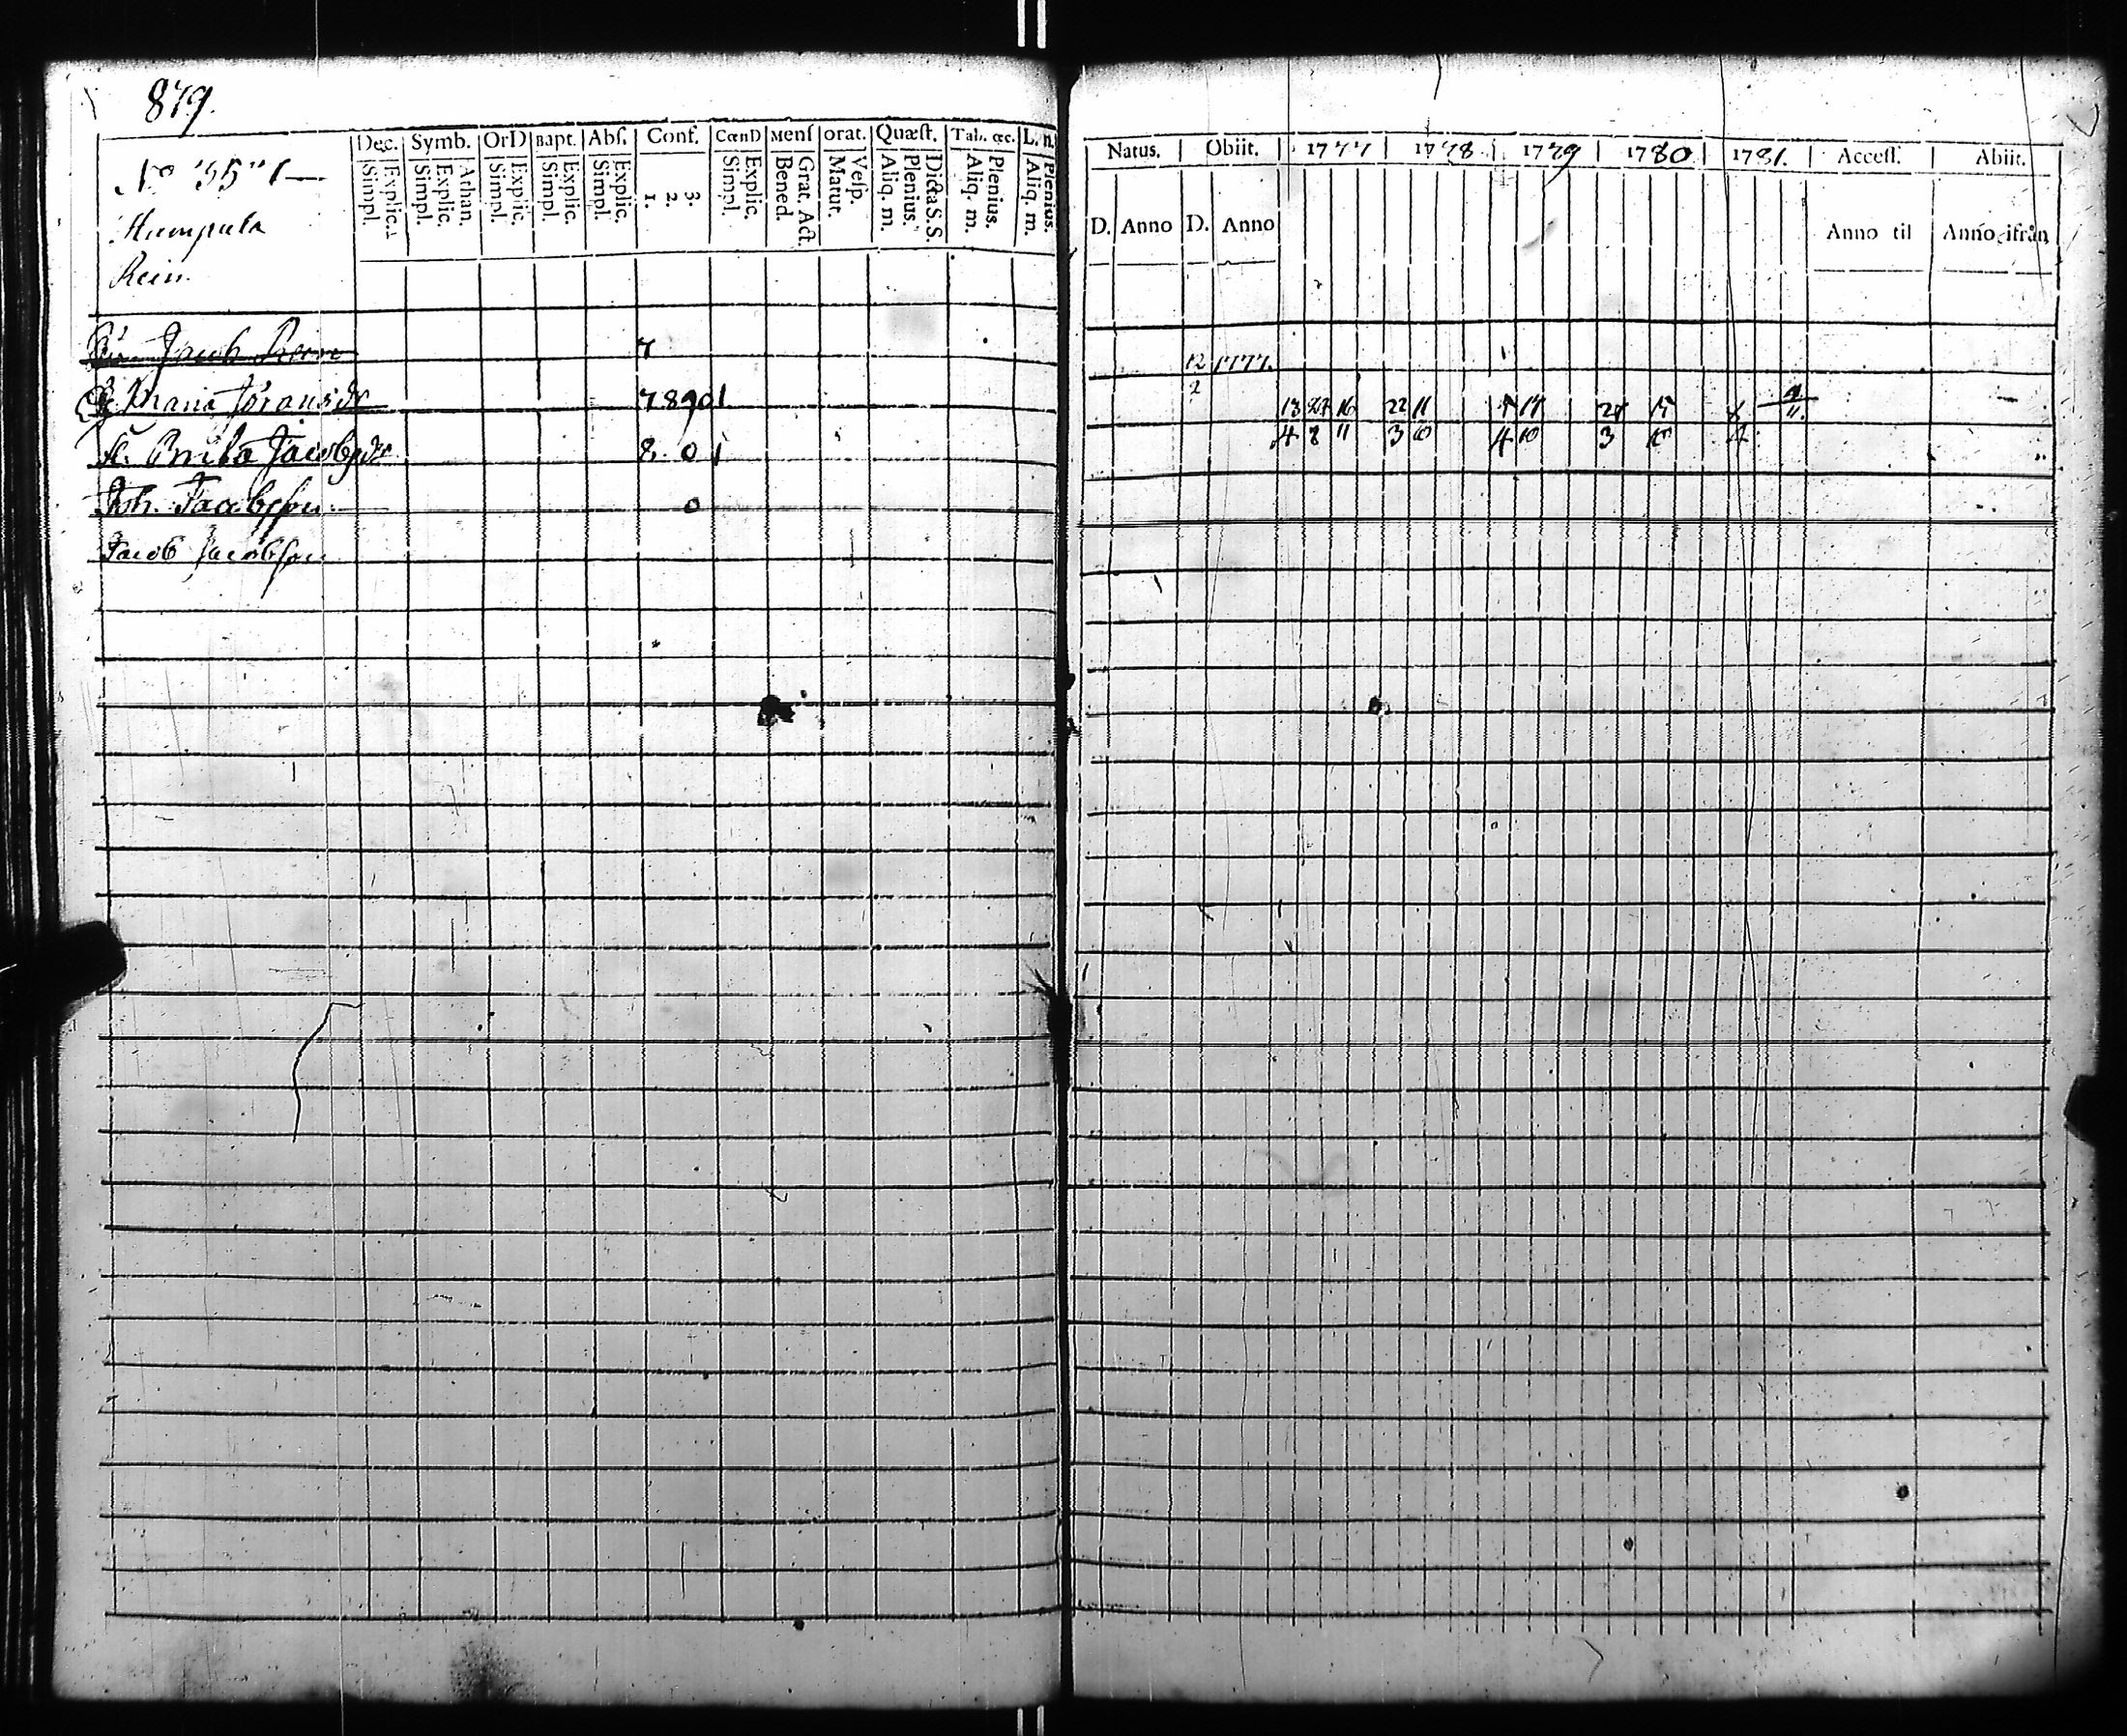 879.
Dec. Symb. OrD Bapt. Abſ. Conf. CœnD Menſ orat. Quæſt. Tab. œc. L. n.
Simpl. Explic. Simpl. Explic. Athan. Simpl. Explic. Simpl. Explic. Simpl. Explic. 1. 2. 3. Simpl. Explic. Bened. Grat. Act. Matut. Veſp. Aliq. m. Plenius. Dicta S. S. Aliq. m. Plenius. Aliq. m. Plenius.
No 55 1
Humpula
Rein
Jacob 7
Maria Jöransdr 7 8 9 0 1
Brita Jacobsdr 8. 0 1
Joh. Jacobsson 0
Jacob Jacobsson
Natus. Obiit. 1777 1778 1779 1780 1781. Acceſſ. Abiit.
D. Anno D. Anno Anno til Anno ifrån
12 1777.
2
13 27 16 22 11 17 15
4 8 11 3 10 4 10 3 10